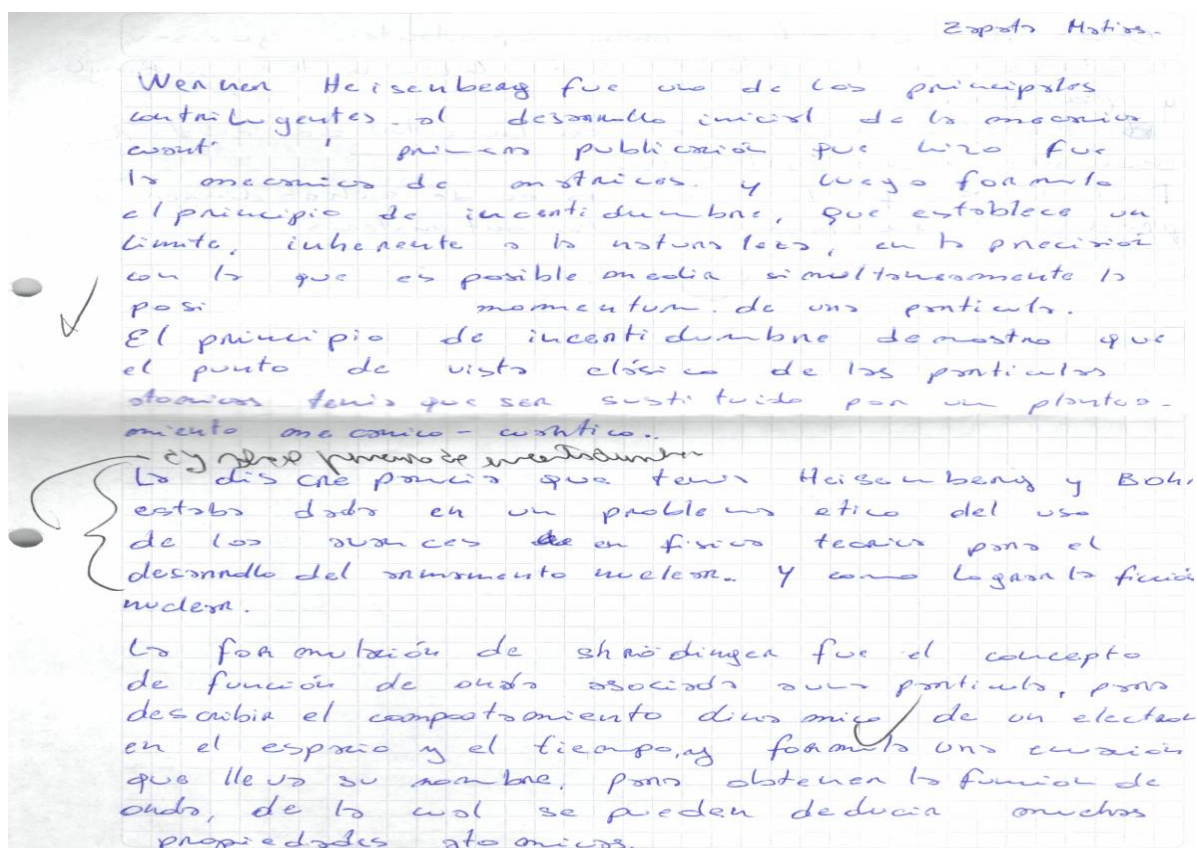 Zapata Matias.
Wernner Heisenberg fue uno de los principales
contribuyentes al desarrollo inicial de la mecanica
cuant primera publicación que hizo fue
la mecanica de matrices. y luego formulo
el principio de incertidumbre, que establece un
limite, inherente a la naturaleza, en la precisión
con la que es posible medir simultaneamente la
posi momentum. de una particula.
El principio de incertidumbre demostro que
el punto de vista clásico de las particulas
atomicas tenia que ser sustituido por un plantea-
miento mecanico - cuantico..
- ¿y sobre de incertidumbre
La discrepancia que tenia Heisemberg y Bohr
estaba dada en un problema etico del uso
de los avances en fisica teorica para el
desarrollo del armamento nuclear.. Y como lograr la ficción
nuclear.
La formulación de shrödinger fue el concepto
de función de onda asociada a una particula, para
describir el comportamiento dinamico de un electron
en el espacio y el tiempo, y formulo una ecuación
que lleva su nombre, para obtener la funcion de
onda, de la cual se pueden deducir muchas
propiedades atomicas.